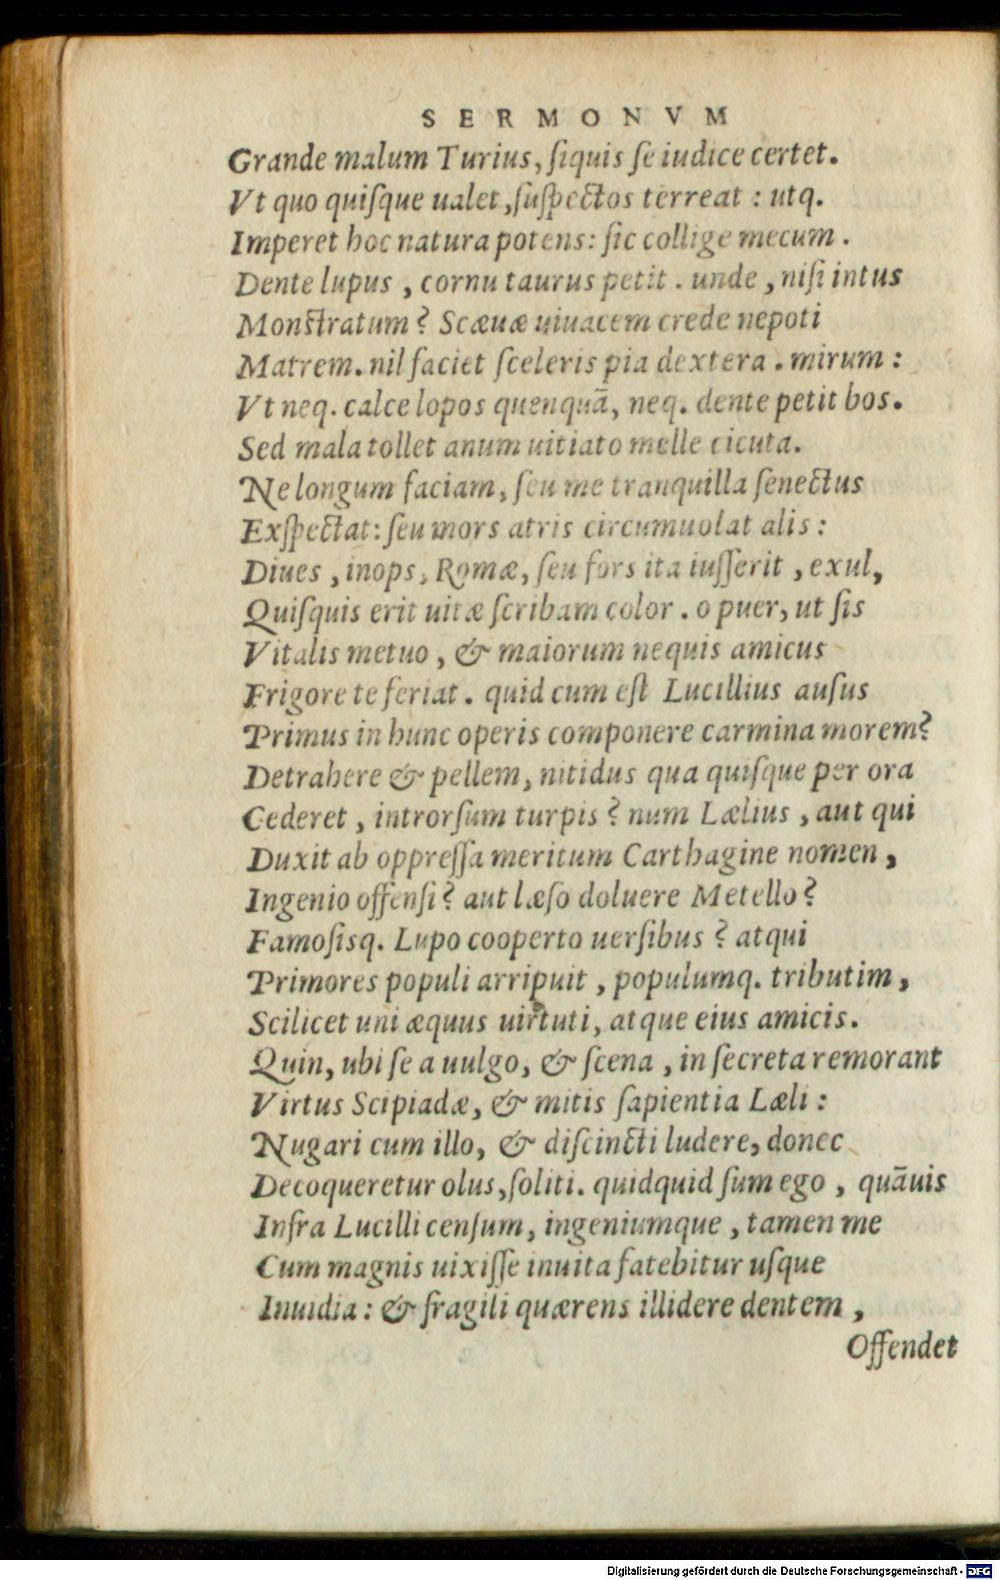 SERMONVM
Grande malum Turius, ſiquis ſe iudice certet.
Vt quo quiſque ualet, ſuſpectos terreat : utq.
Imperet hoc natura potens: ſic collige mecum.
Dente lupus, cornu taurus petit. unde, niſi intus
Monſtratum? Scæuæ uiuacem crede nepoti
Matrem. nil faciet ſceleris pia dextera. mirum:
Vt neq. calce lopos quenquã, neq. dente petit bos.
Sed mala tollet anum uitiato melle cicuta.
Ne longum faciam, ſeu me tranquilla ſenectus
Exſpectat: ſeu mors atris circumuolat alis:
Diues, inops, Romæ, ſeu fors ita iuſſerit, exul,
Quiſquis erit uitæ ſcribam color. o puer, ut ſis
Vitalis metuo, & maiorum nequis amicus
Frigore te feriat. quid cum eſt Lucillius auſus
Primus in hunc operis componere carmina morem?
Detrahere & pellem, nitidus qua quiſque per ora
Cederet, introrſum turpis? num Lælius, aut qui
Duxit ab oppreſſa meritum Carthagine nomen,
Ingenio offenſi? aut læſo doluere Metello?
Famoſisq. Lupo cooperto uerſibus? atqui
Primores populi arripuit, populumq. tributim,
Scilicet uni æquus uirtuti, atque eius amicis.
Quin, ubi ſe a uulgo, & ſcena, in ſecreta remorant
Virtus Scipiadæ, & mitis ſapientia Læli:
Nugari cum illo, & diſcincti ludere, donec
Decoqueretur olus, ſoliti. quidquid ſum ego, quãuis
Infra Lucilli cenſum, ingeniumque, tamen me
Cum magnis uixiſſe inuita fatebitur uſque
Inuidia: & fragili quærens illidere dentem,
Offendet
Digitalisierung gefördert durch die Deutsche Forschungsgemeinschaft - DFG